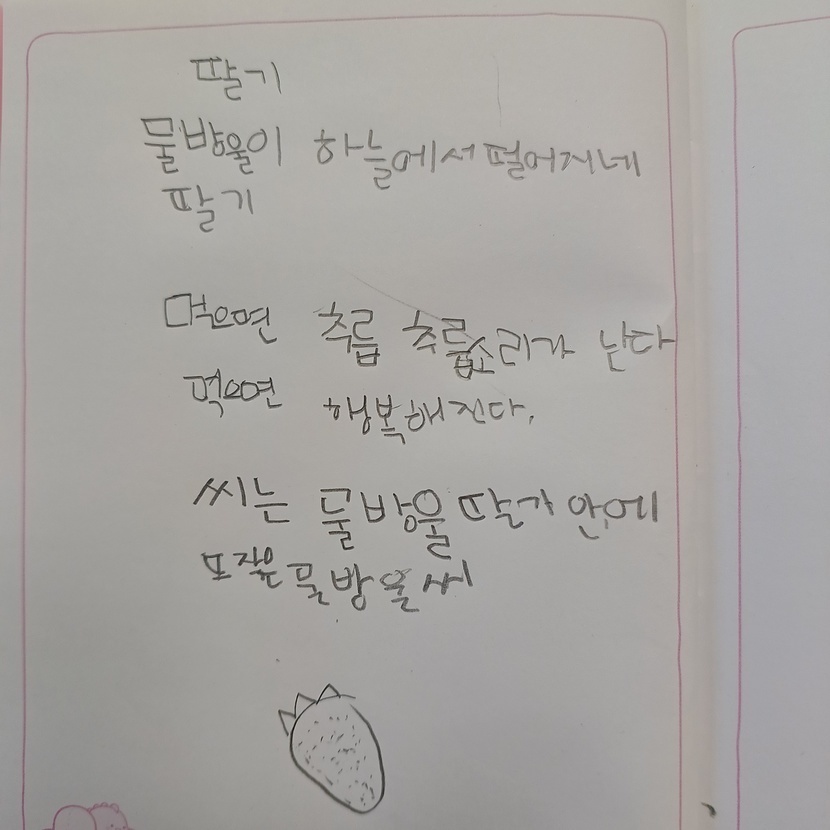 딸기
물방울이 하늘에서 떨어지네
딸기
먹으면 츄릅 츄릅소리가 난다
먹으면 행복해진다.
씨는 물방울 딸기 안에
또 작은 물방울 씨